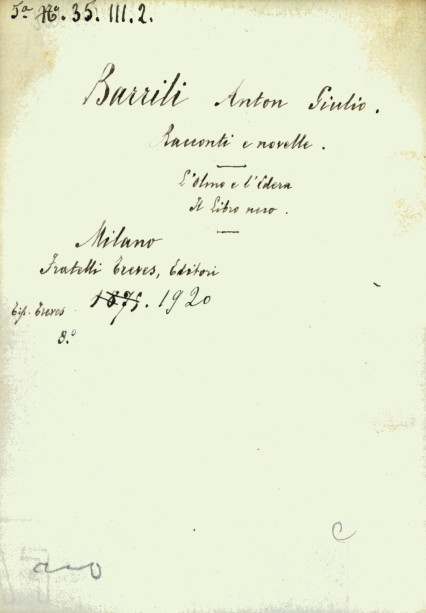 5ª Nº. 35. III. 2.
Barrili Anton Giulio.
Racconti e novelle.
L'Olmo e l'Edera
Il Libro nero.
Milano
Fratelli Treves, Editori
1875. 1920
Tip. Treves
8.º
C